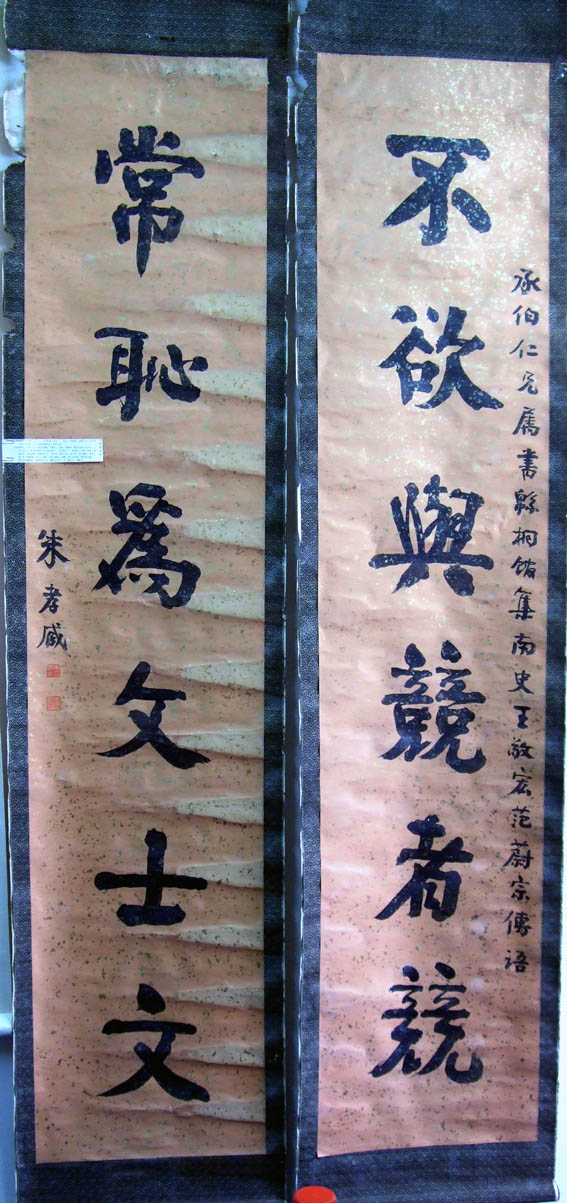 承伯仁兄属書緜桐館集南史王敬宏范蔚宗傳語
不欲與競者競
常恥爲文士文
朱孝臧